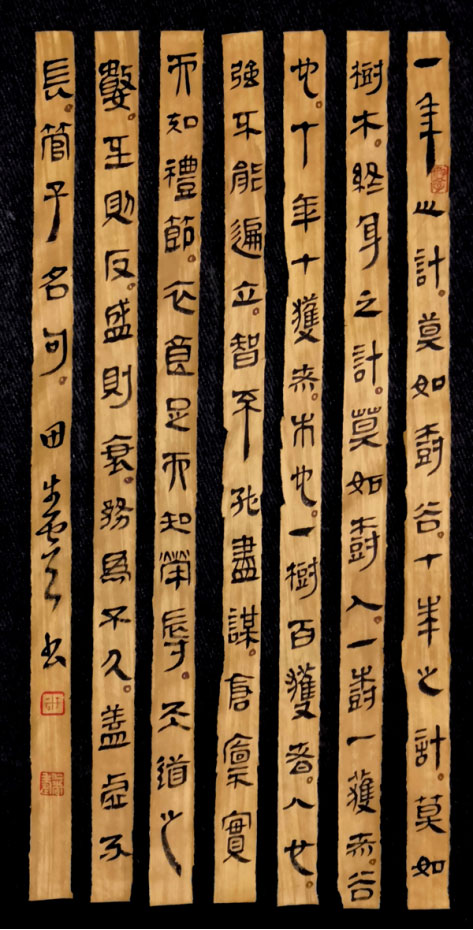 一年之計。莫如樹谷。十年之計。莫如
樹木。終身之計。莫如樹人。一樹一獲者。谷
也。十年十獲者。木也。一樹百獲者。人也。
強不能遍立。智不能盡謀。倉廩實
而知禮節。衣食足而知榮辱。天道之
數。至則反。盛則衰。務為不久。蓋虛不
長。管子名句。田书